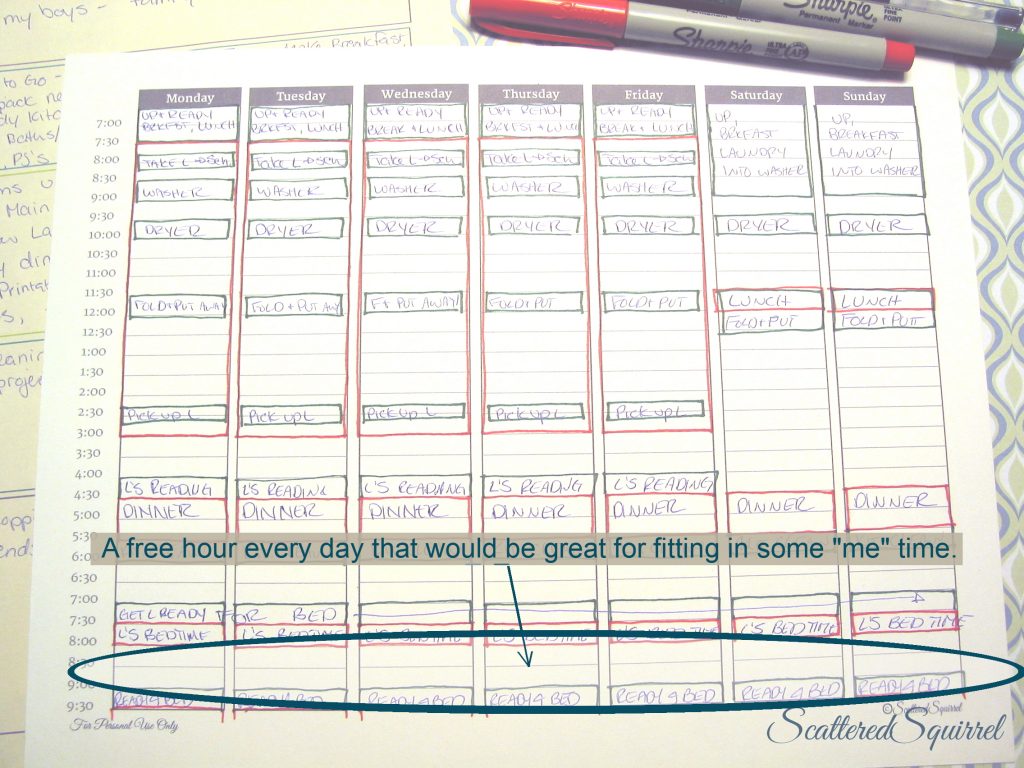 my boys - family
make Breakfast
to Go -
pack
Sharpie
Permanent Marker
Sharpie
Permanent Marker
FINE POINT
ULTRA FINE
Monday Tuesday Wednesday Thursday Friday Saturday Sunday
UP+ READY UP+ READY UP+ READY UP+ READY UP+ READY UP, UP,
7:00 BRKFST, LUNCH BRKFST, LUNCH BREAK + LUNCH BRKFST + LUNCH BREAK + LUNCH BRKFAST BREAKFAST
7:30 LAUNDRY LAUNDRY
8:00 TAKE L → Sch TAKE L → Sch TAKE L → Sch TAKE L → Sch TAKE L → Sch INTO WASHER INTO WASHER
8:30
9:00 WASHER WASHER WASHER WASHER WASHER
9:30
10:00 DRYER DRYER DRYER DRYER DRYER DRYER DRYER
10:30
11:00
11:30
12:00 FOLD+PUT AWAY FOLD + PUT AWAY F+ PUT AWAY FOLD+PUT FOLD+PUT LUNCH LUNCH
12:30 FOLD+PUT FOLD+PUT
1:00
1:30
2:00
2:30 Pick up L Pick up L Pick up L Pick up L Pick up L
3:00
3:30
4:00
4:30 L'S READING L'S READING L'S READING L'S READING L'S READING
5:00 DINNER DINNER DINNER DINNER DINNER DINNER DINNER
5:3
A free hour every day that would be great for fitting in some "me" time.
6:30
7:00
7:30 GET L READY FOR BED
8:00 L'S BEDTIME L'S BEDTIME L'S BEDTIME L'S BEDTIME L'S BEDTIME L'S BEDTIME L'S BEDTIME
8:30
9:00 READY 4 BED READY 4 BED READY 4 BED READY 4 BED READY 4 BED READY 4 BED READY 4 BED
9:30
For Personal Use Only
©ScatteredSquirrel
ScatteredSquirrel